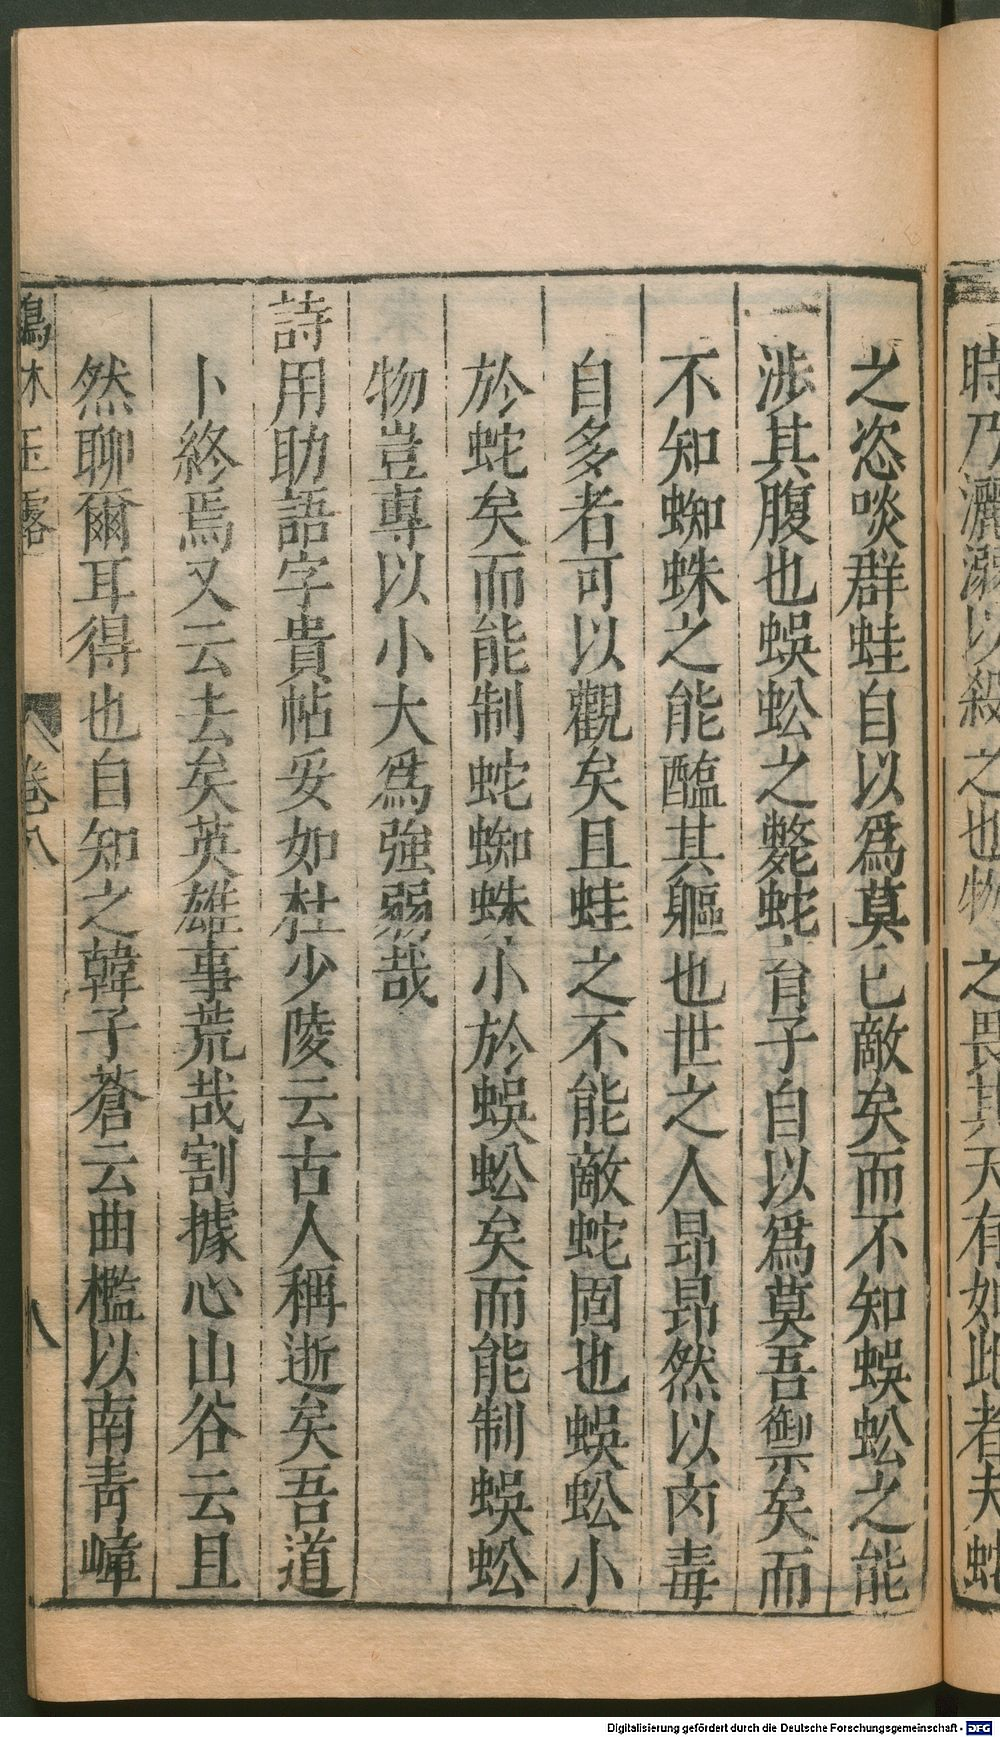 時乃灑溺以殺之也物之畏其天有如此者夫蛇
之恣啖群蛙自以爲莫已敵矣而不知蜈蚣之能
涉其腹也蜈蚣之斃蛇育子自以爲莫吾禦矣而
不知蜘蛛之能醢其軀也世之人昂昂然以肉毒
自多者可以觀矣且蛙之不能敵蛇固也蜈蚣小
於蛇矣而能制蛇蜘蛛小於蜈蚣矣而能制蜈蚣
物豈專以小大爲強弱哉
詩用助語字貴帖妥如杜少陵云古人稱逝矣吾道
卜終焉又云去矣英雄事荒哉割據心山谷云且
然聊爾耳得也自知之韓子蒼云曲檻以南青嶂
鶴林玉露 卷八 八
Digitalisierung gefördert durch die Deutsche Forschungsgemeinschaft - DFG